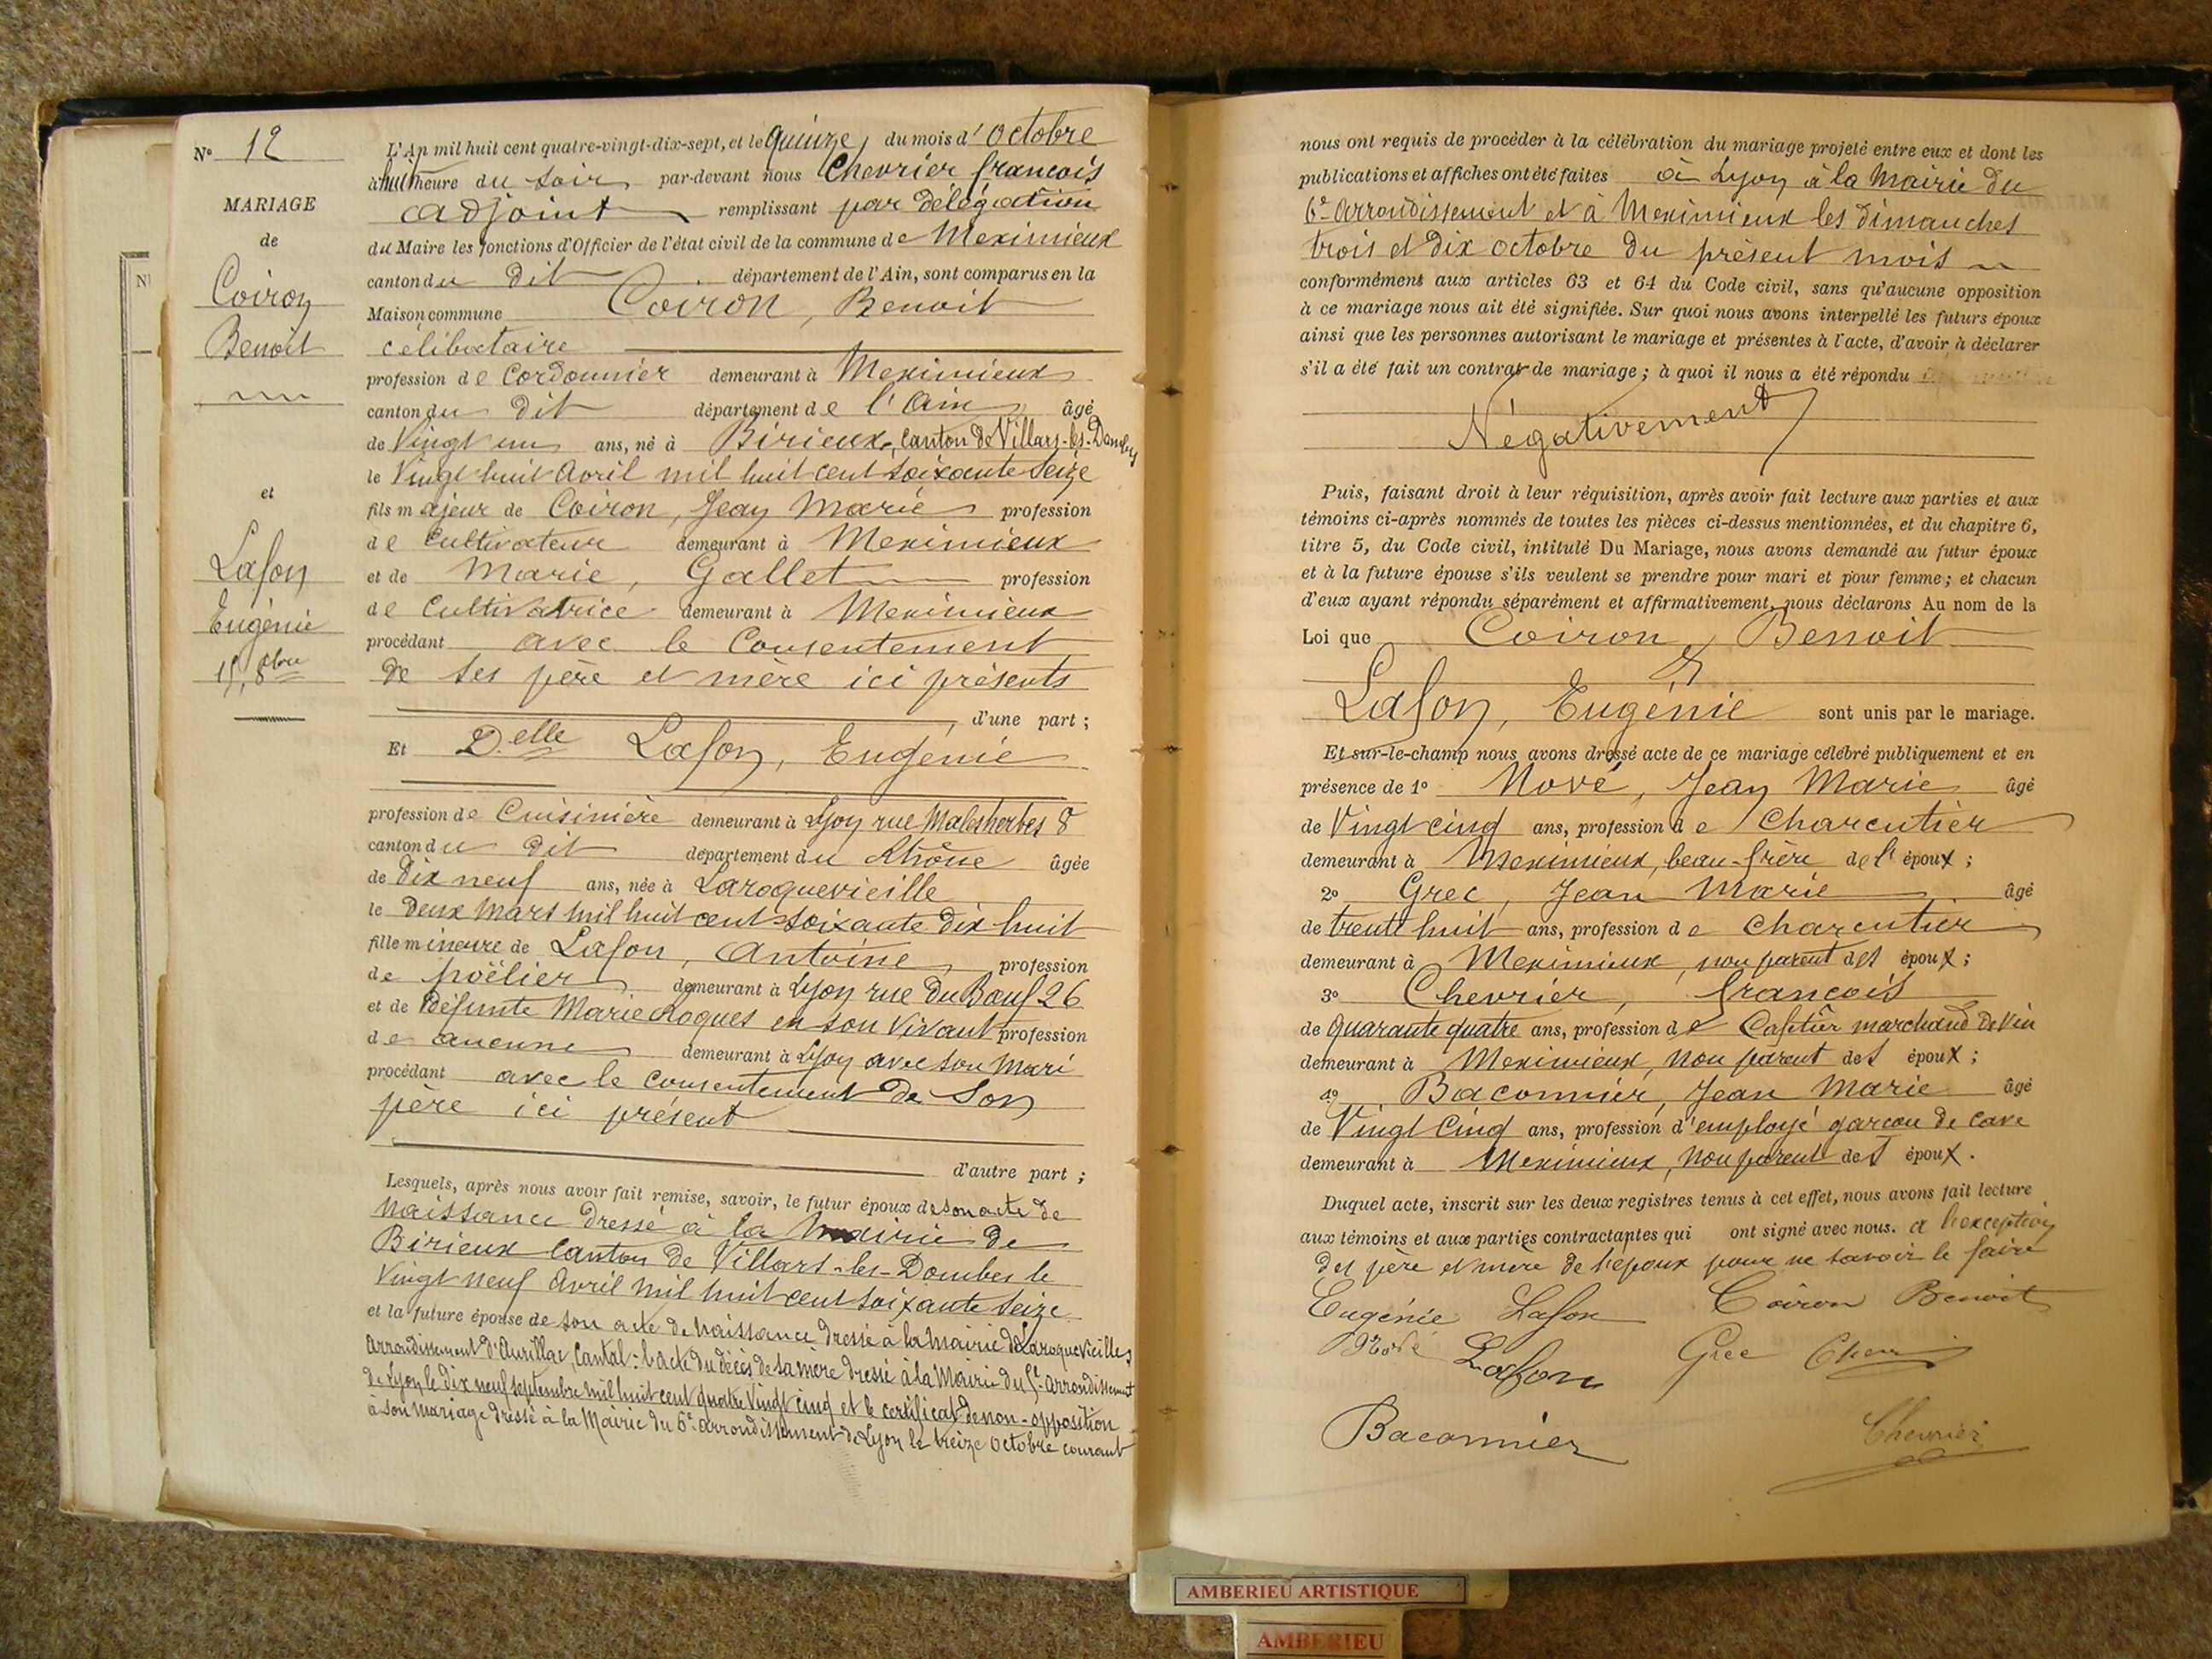 N° 12
MARIAGE
de
Coiron
Benoit
et
Lafon
Eugénie
15, 8bre
L'An mil huit cent quatre-vingt-dix-sept, et le Quinze, du mois d'Octobre
à huit heure du soir par-devant nous Chevrier françois
adjoint remplissant par délégation
du Maire les fonctions d'Officier de l'état civil de la commune de Meximieux
canton du dit département de l'Ain, sont comparus en la
Maison commune Coiron, Benoit
célibataire
profession de Cordonnier demeurant à Meximieux
canton du dit département de l'Ain âgé
de Vingt un ans, né à Birieux, Canton de Villars-les-Dombes
le Vingt huit Avril mil huit cent soixante seize
fils majeur de Coiron, Jean Marie profession
de Cultivateur demeurant à Meximieux
et de Marie, Gallet profession
de Cultivatrice demeurant à Meximieux
procédant avec le Consentement
de ses père et mère ici présents
d'une part ;
Et Delle Lafon, Eugénie
profession de Cuisinière demeurant à Lyon rue Malesherbes 8
canton du dit département du Rhône âgée
de dix neuf ans, née à Laroquevieille
le Deux Mars mil huit cent soixante dix huit
fille mineure de Lafon, Antoine profession
de poëlier demeurant à Lyon rue Du Bœuf 26
et de Défunte Marie Loques en son Vivant profession
de aucune demeurant à Lyon avec son Mari
procédant avec le consentement de Son
père ici présent
d'autre part ;
Lesquels, après nous avoir fait remise, savoir, le futur époux de son acte de
Naissance dressé à la Mairie de
Birieux Canton de Villars-les-Dombes le
Vingt neuf Avril mil huit cent soixante seize
et la future épouse de son acte de Naissance dressé à la Mairie de Laroquevieille
Arrondissement d'Aurillac, Cantal : l'acte du décès de sa mère dressé à la Mairie du 5e arrondissement
de Lyon le dix neuf septembre mil huit cent quatre Vingt cinq et le certificat de non-opposition
à son Mariage dressé à la Mairie du 6e arrondissement de Lyon le treize octobre courant
nous ont requis de procéder à la célébration du mariage projeté entre eux et dont les
publications et affiches ont été faites à Lyon à la Mairie du
6e Arrondissement et à Meximieux les dimanches
trois et dix octobre du présent mois
conformément aux articles 63 et 64 du Code civil, sans qu'aucune opposition
à ce mariage nous ait été signifiée. Sur quoi nous avons interpellé les futurs époux
ainsi que les personnes autorisant le mariage et présentes à l'acte, d'avoir à déclarer
s'il a été fait un contrat de mariage ; à quoi il nous a été répondu
Négativement
Puis, faisant droit à leur réquisition, après avoir fait lecture aux parties et aux
témoins ci-après nommés de toutes les pièces ci-dessus mentionnées, et du chapitre 6,
titre 5, du Code civil, intitulé Du Mariage, nous avons demandé au futur époux
et à la future épouse s'ils veulent se prendre pour mari et pour femme ; et chacun
d'eux ayant répondu séparément et affirmativement, nous déclarons Au nom de la
Loi que Coiron, Benoit
&
Lafon, Eugénie sont unis par le mariage.
Et sur-le-champ nous avons dressé acte de ce mariage célébré publiquement et en
présence de 1° Nové, Jean Marie âgé
de Vingt cinq ans, profession de Charcutier
demeurant à Meximieux, beau-frère de l'époux ;
2° Grec, Jean Marie âgé
de trente huit ans, profession de Charcutier
demeurant à Meximieux, non parent des époux ;
3° Chevrier, françois
de quarante quatre ans, profession de Cafetier marchand de vin
demeurant à Meximieux, Non parent des époux ;
4° Baconnier, Jean Marie âgé
de Vingt Cinq ans, profession d'employé garcon de cave
demeurant à Meximieux, Non parent des époux.
Duquel acte, inscrit sur les deux registres tenus à cet effet, nous avons fait lecture
aux témoins et aux parties contractantes qui ont signé avec nous. a l'exception
des père et mère de l'époux pour ne savoir le faire
Eugénie Lafon Coiron Benoit
Nové Lafon Grec
Baconnier Chevrier
AMBERIEU ARTISTIQUE
AMBERIEU